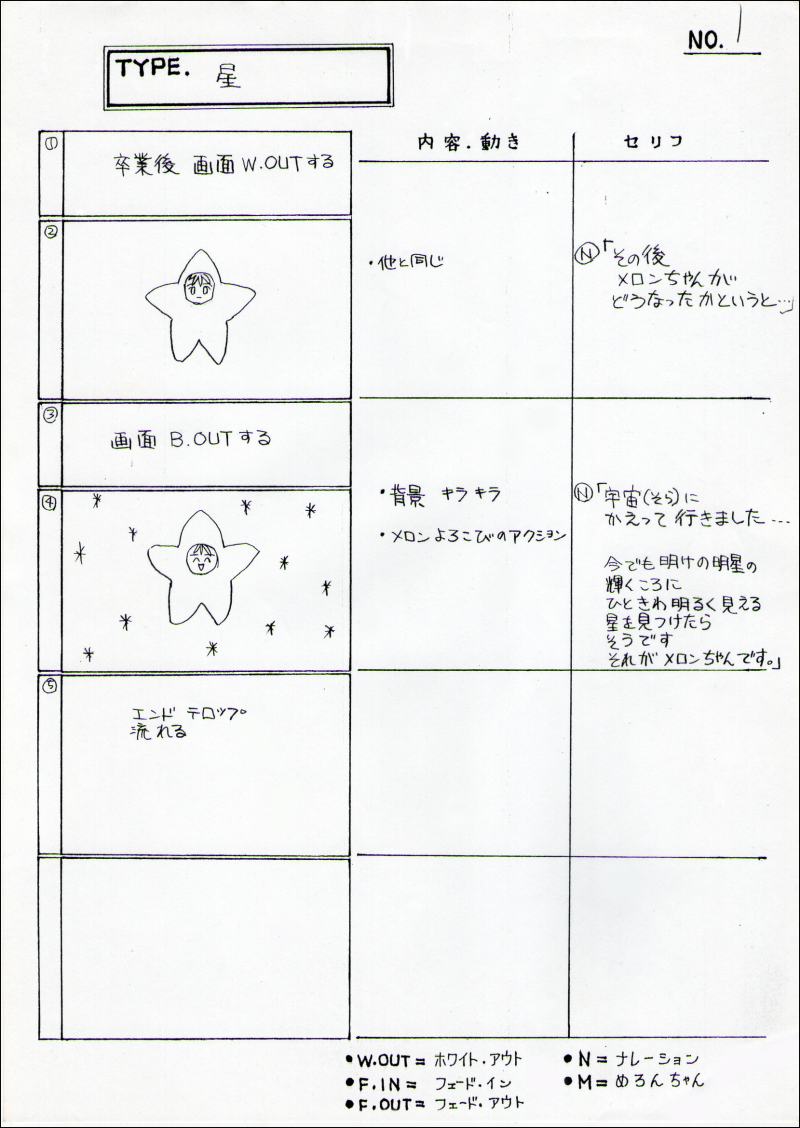 NO. 1
TYPE. 星
内容.動き
セリフ
①
卒業後 画面 W.OUTする
②
・他と同じ
Ⓝ「その後
メロンちゃんが
どうなったかというと…」
③
画面 B.OUTする
④
・背景 キラキラ
・メロンよろこびのアクション
Ⓝ「宇宙(そら)に
かえって行きました…
今でも明けの明星の
輝くころに
ひときわ明るく見える
星を見つけたら
そうです
それがメロンちゃんです。」
⑤
エンド テロップ
流れる
●W.OUT= ホワイト.アウト
●F.IN= フェード.イン
●F.OUT= フェード.アウト
●N=ナレーション
●M=めろんちゃん